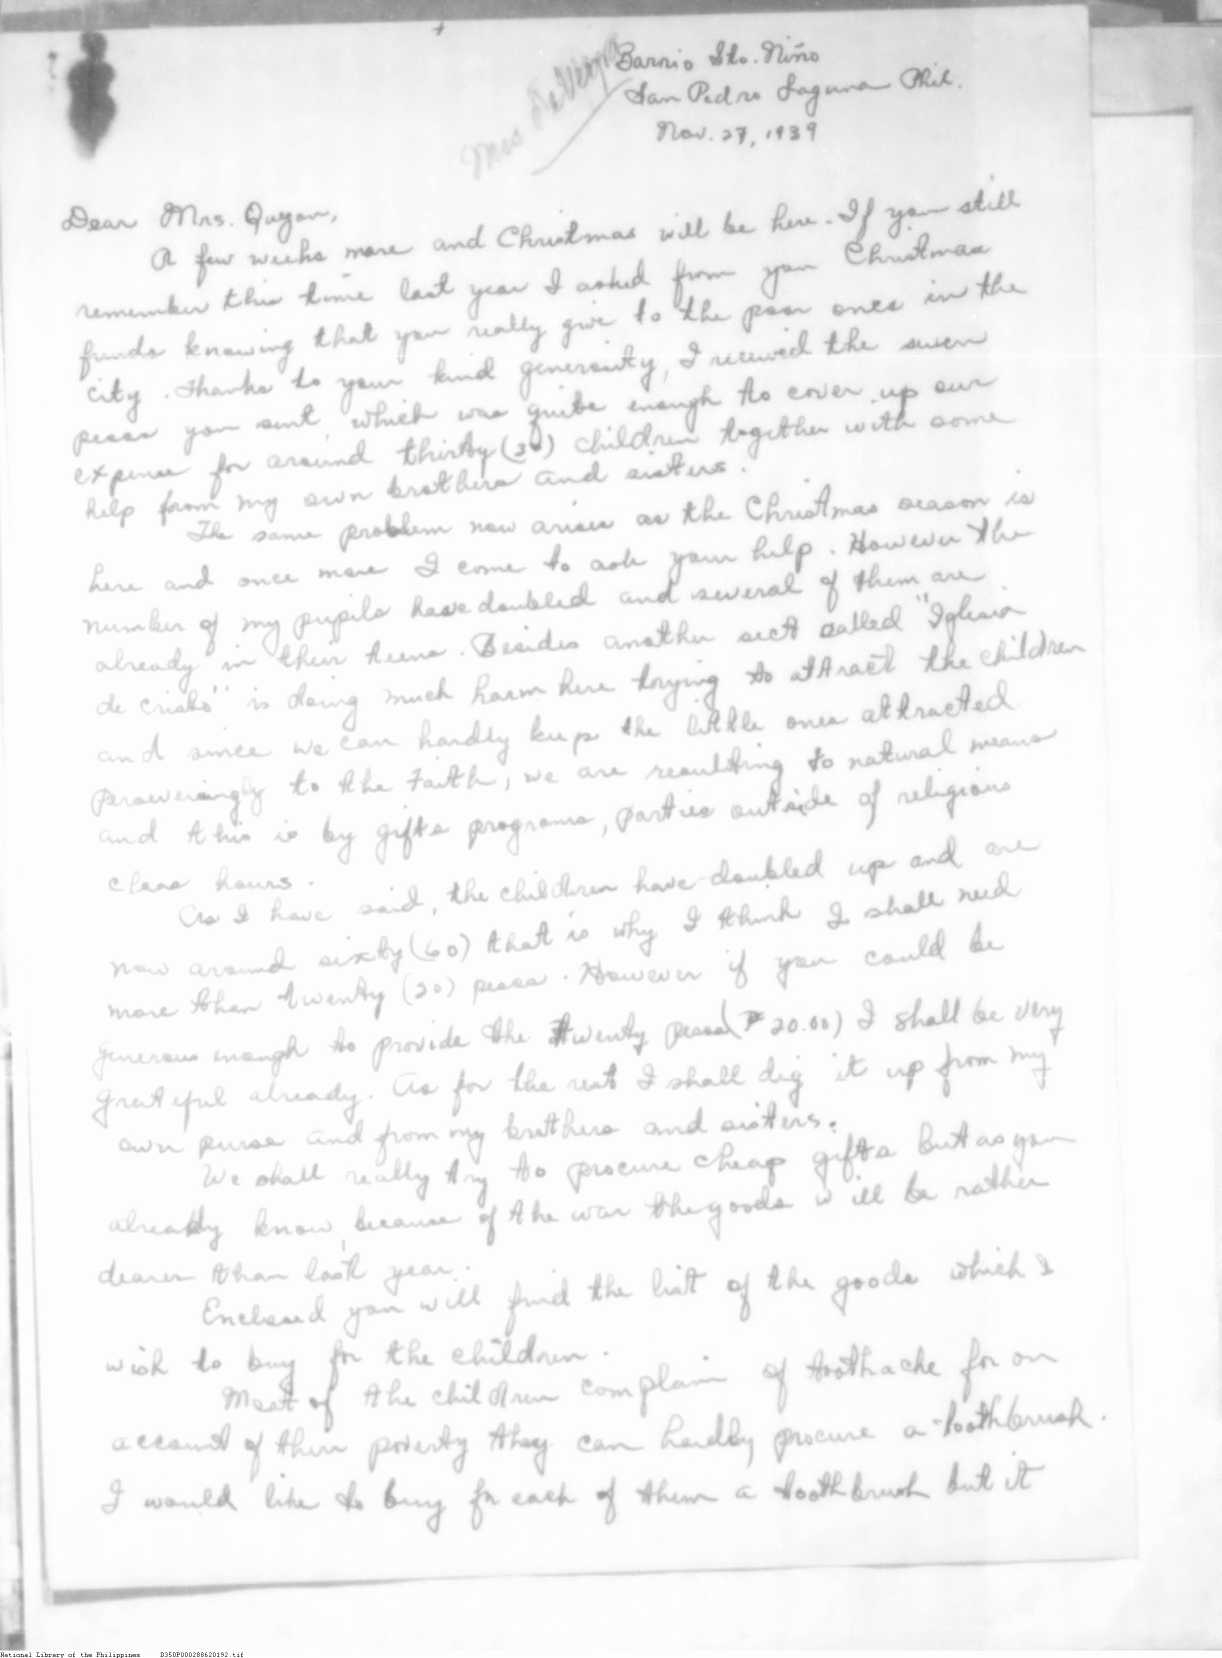 Mrs DeVeyra
Barrio Sto. Niño
San Pedro Laguna Phil.
Nov. 27, 1939
Dear Mrs. Quezon,
A few weeks more and Christmas will be here. If you still
remember this time last year I asked from you Christmas
funds knowing that you really give to the poor ones in the
city. Thanks to your kind generosity, I received the seven
pesos you sent, which was quite enough to cover up our
expense for around thirthy (30) children together with some
help from my own brothers and sisters.
The same problem now arises as the Christmas season is
here and once more I come to ask your help. However the
number of my pupils have doubled and several of them are
already in their teens. Besides another sect called "Iglesia
de cristo" is doing much harm here trying to attract the children
and since we can hardly keep the little ones attracted
perseveringly to the Faith, we are resulting to natural means
and this is by gifts programs, parties outside of religious
class hours.
As I have said, the children have doubled up and are
now around sixty (60) that is why I think I shall need
more than twenty (20) pesos. However if you could be
generous enough to provide the twenty pesos (₱20.00) I shall be very
grateful already. As for the rest I shall dig it up from my
own purse and from my brothers and sisters.
We shall really try to procure cheap gifts but as you
already know, because of the war the goods will be rather
dearer than last year.
Enclosed you will find the list of the goods which I
wish to buy for the children.
Most of the children complain of toothache for on
account of their poverty they can hardly procure a toothbrush.
I would like to buy for each of them a toothbrush but it
National Library of the Philippines D350P000288620192.tif